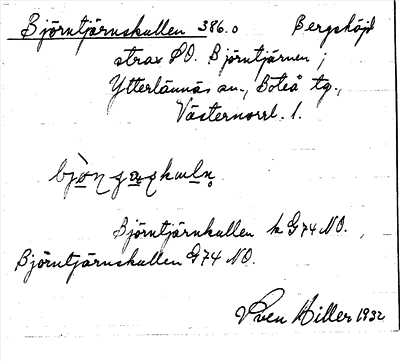 Björntjärnskullen 386.0 Bergshöjd
strax SO. Björntjärnen;
Ytterlännäs sn., Boteå tg.,
Västernorrl. l.
Björntjärnkullen k G74 NO.,
Björntjärnskullen G74 NO.
Sven Hiller 1932